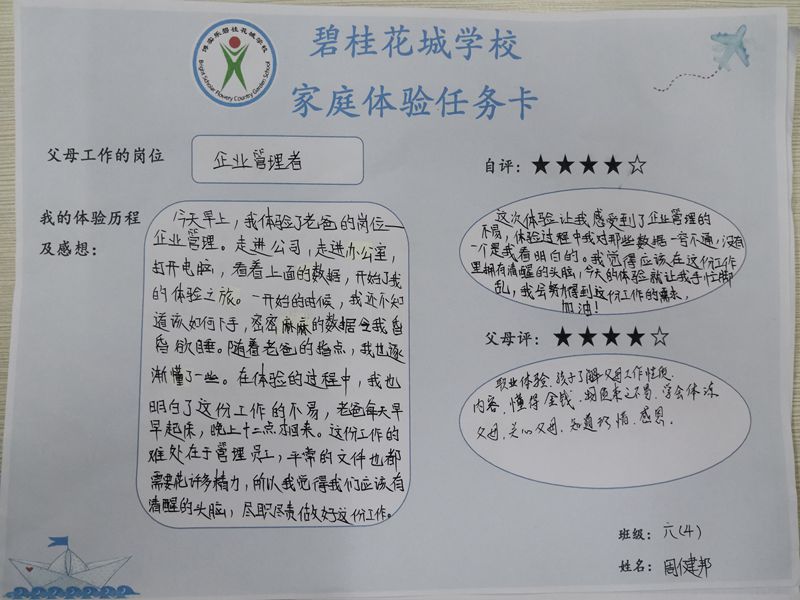 博实乐碧桂花城学校
Bright Scholar Flowery Country Garden School
碧桂花城学校
家庭体验任务卡
父母工作的岗位
企业管理者
我的体验历程
及感想：
今天早上，我体验了老爸的岗位——
企业管理。走进公司，走进办公室，
打开电脑，看着上面的数据，开始了我
的体验之旅。一开始的时候，我还不知
道该如何下手，密密麻麻的数据令我昏
昏欲睡。随着老爸的指点，我也逐
渐懂了一些。在体验的过程中，我也
明白了这份工作的不易，老爸每天早
早起床，晚上十二点才回来。这份工作的
难处在于管理员工，平常的文件也都
需要花许多精力，所以我觉得我们应该有
清醒的头脑，尽职尽责做好这份工作。
自评：★★★★☆
这次体验让我感受到了企业管理的
不易，体验过程中我对那些数据一窍不通，没有
一个是我看明白的。我觉得应该在这份工作
里拥有清醒的头脑，今天的体验就让我手忙脚
乱，我会努力得到这份工作的需求，
加油！
父母评：★★★★☆
职业体验，孩子了解父母工作性质、
内容，懂得金钱、来之不易，学会体谅
父母，关心父母，知道珍惜、感恩。
班级：六(4)
姓名：周健邦